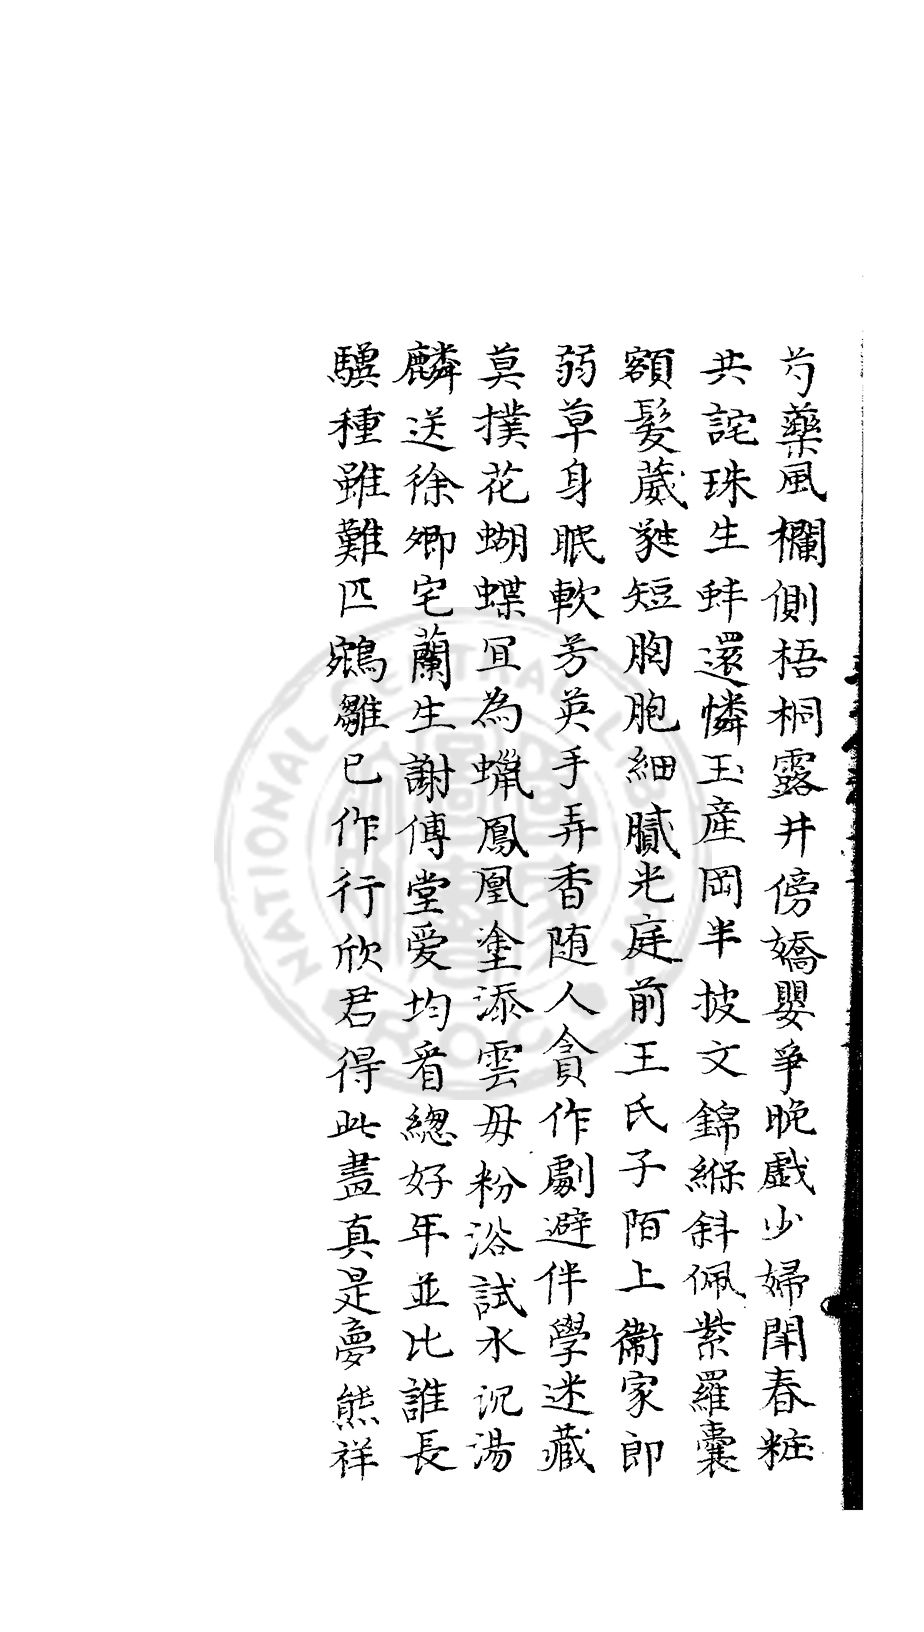 芍藥風欄側梧桐露井傍嬌嬰爭晚戱少婦鬥春粧
共詫珠生蚌還憐玉產岡半披文錦緥斜佩紫羅囊
額髮葳蕤短胸胞細膩光庭前王氏子陌上衞家郎
弱草身眠軟芳英手弄香随人貪作劇避伴學迷藏
莫撲花蝴蝶冝為蠟鳳凰塗添雲毋粉浴試水沉湯
麟送徐卿宅蘭生謝傅堂愛均看總好年並比誰長
驥種雖難匹鵷雛已作行欣君得此畫真是夢熊祥
NATIONAL CENTRAL LIBRARY R.O.C.